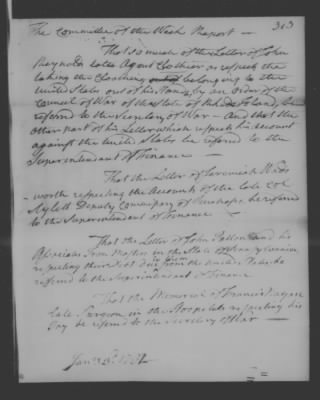 313
The Committee of the Week Report —
That so much of the Letter of John
Reynolds late Agent Clothier as respects the
taking the Cloathing belonging to the
United States out of his Hands, by an order of the
Council of War of the State of Rhode Island, be
referred to the Secretary of War — And that the
other part of his Letter which respects his Account
against the United States be referred to the
Superintendant of Finance —
That the Letter of Jeremiah Wads
-worth respecting the Accounts of the late Col
Deputy Commissary of Purchases be referred
to the Superintendant of Finance —
That the Letter of John and his
in the State of
respecting due from the be
referred to the Superintendant of Finance
That the Memorial of Francis
late Surgeon in the respecting his
Pay be referred to the Secretary of War —
Jany 1782